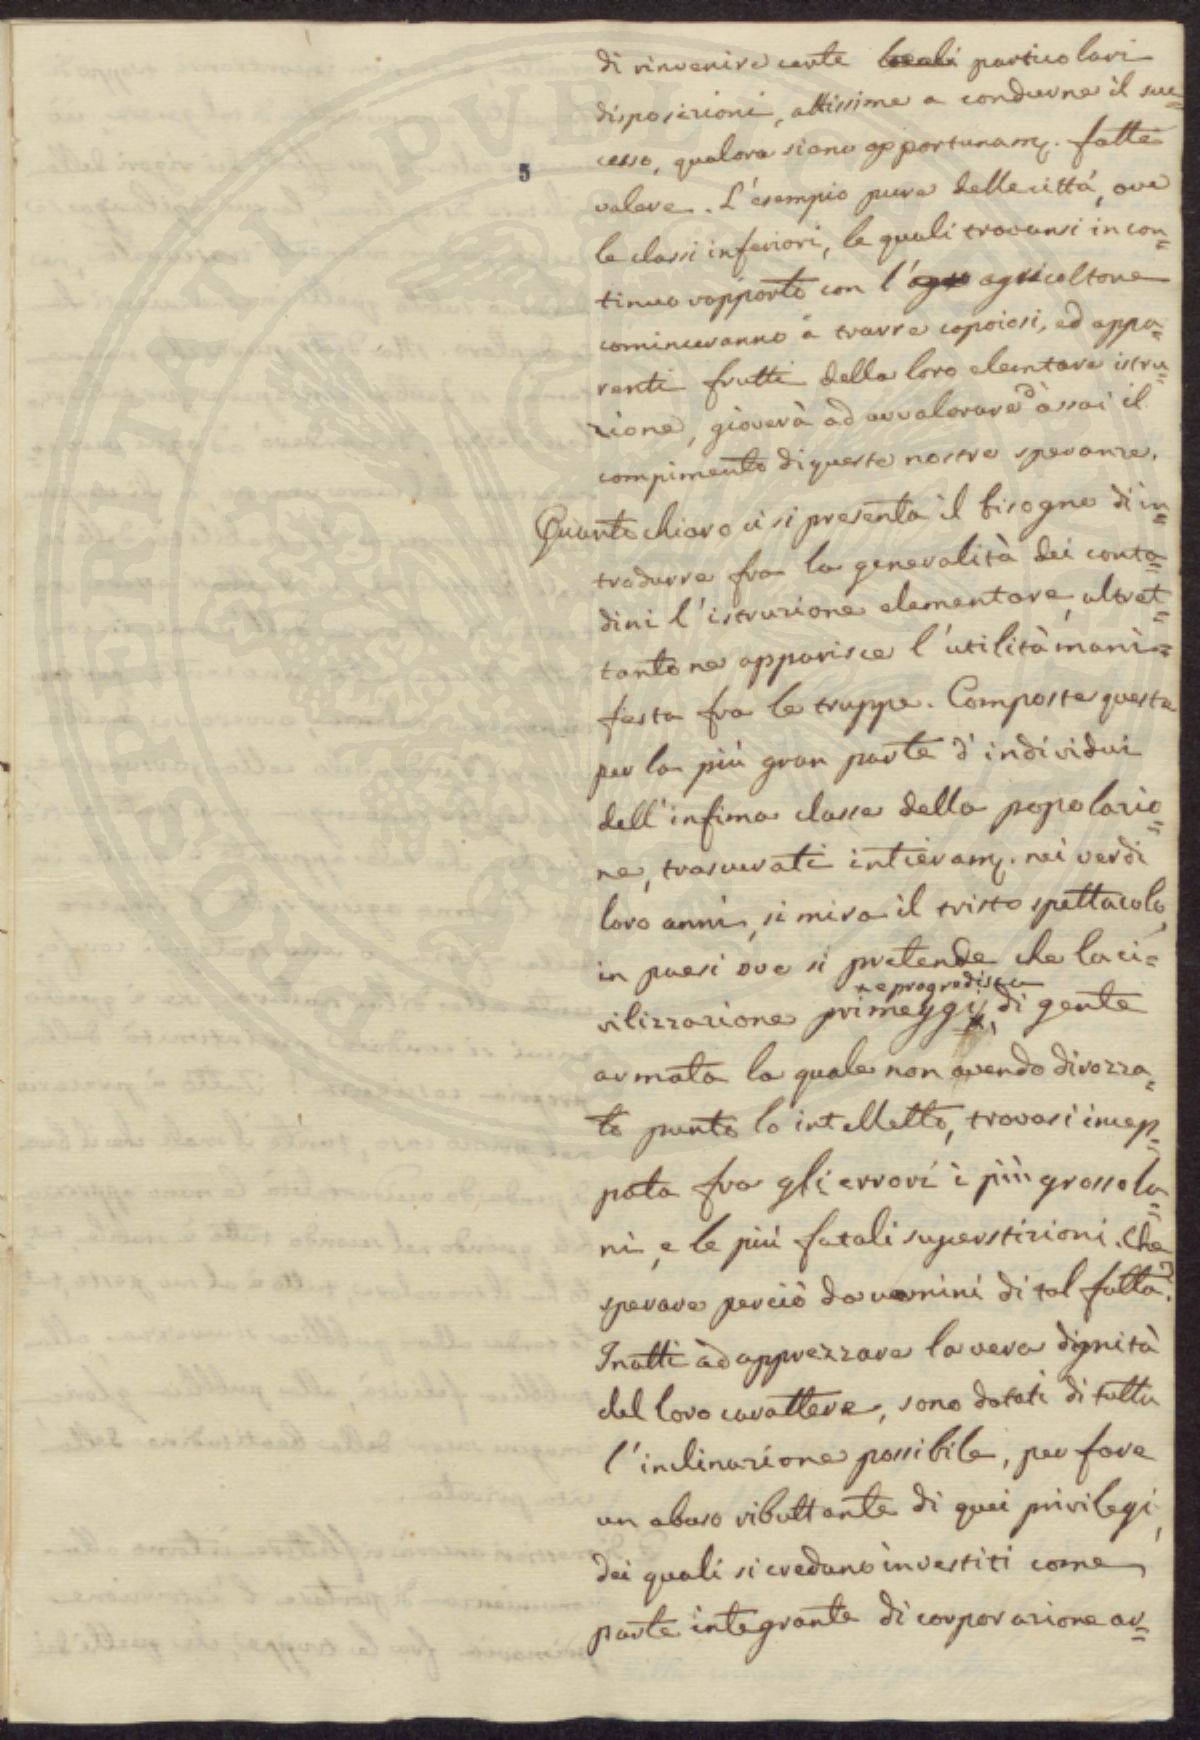 di rinvenire certe locali particolari
disposizioni, attissime a condurne il suc=
cesso, qualora siano opportunam. fatte
5
valere. L'esempio pure delle città, ove
le classi inferiori, le quali trovansi in con=
tinuo rapporto con l'agr agricoltore
cominceranno a trarre copiosi, ed appa=
renti frutti della loro elemntare istru=
zione, gioverà ad avvalorare d'assai il
compimento di queste nostre speranze.
Quanto chiaro ci si presenta il bisogno di in=
trodurre fra la generalità dei conta=
dini l'istruzione elementare, altret=
tanto ne apparisce l'utilità mani=
festa fra le truppe. Composte queste
per la più gran parte d'individui
dell'infima classe della popolazio=
ne, trascurati intieram. nei verdi
loro anni, si mira il tristo spettacolo,
in paesi ove si pretende che la ci=
e progredisca
vilizzazione primeggi, di gente
armata la quale non avendo dirozza=
to punto lo intelletto, trovasi incep=
pata fra gli errori i più grossola=
ni, e le più fatali superstizioni. Che
sperare perciò da uomini di tal fatta?
Inatti ad apprezzare la vera dignità
del loro carattere, sono dotati di tutta
l'inclinazione possibile, per fare
un abuso ributtante di quei privilegi,
dei quali si credano investiti come
parte integrante di corporazione ar=